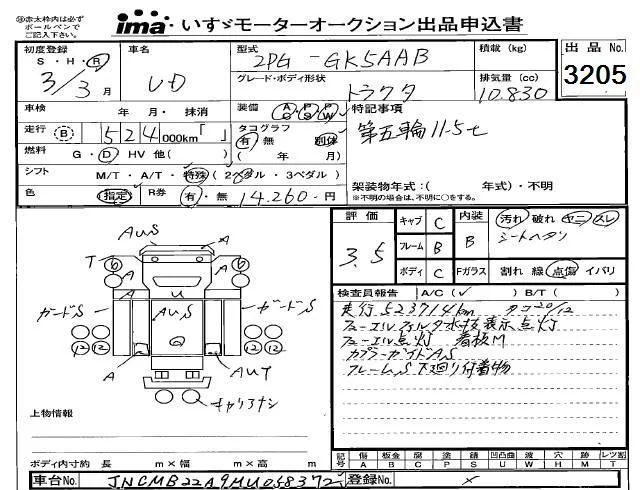 ※赤太枠内は必ず
ボールペンで
ご記入下さい。
ima いすゞモーターオークション出品申込書
初度登録 車名 型式 積載 (kg) 出品No.
S・H・R
3/3月 UD 2PG-GK5AAB 3205
グレード・ボディ形状 トラクタ 排気量 (cc) 10.830
車検 年 月・抹消 装備 AC PS PW 特記事項
走行 B 524 000km「 」 タコグラフ 有・無 別体 第五輪11.5t
燃料 G・D・HV 他( ) ( 年 月)
シフト M/T・A/T・特殊 (2ペダル・3ペダル) 架装物年式:( 年式)・不明
※不明の場合は、不明に○をする。
色 指定 R券 有・無 14.260-円
評価 3.5
キャブ C 内装 B 汚れ 破れ ヤニ スレ
フレーム B シートヘタリ
ボディ C Fガラス 割れ 線 点傷 イバリ
検査員報告 A/C(✓) B/T( )
走行523714km タコ20/12
フューエルフィルタ水抜表示点灯
フューエル点灯 看板M
カプラーガイドAS
フレームS 下廻り付着物
AUS
A
T 6 A 6
A U A
ガードS AUS ガードS
12 12 Q 12 12
A A AUT
キャリアナシ
上物情報
ボディ内寸約 長 m×幅 m×高 m
記号 傷 A 板金 B 腐 C 塗 P 錆 S 凹凸曲 U 波 W 穴 H 跡 M レツ割 T
車台No. JNCMB22A9MU058372 登録No. ×